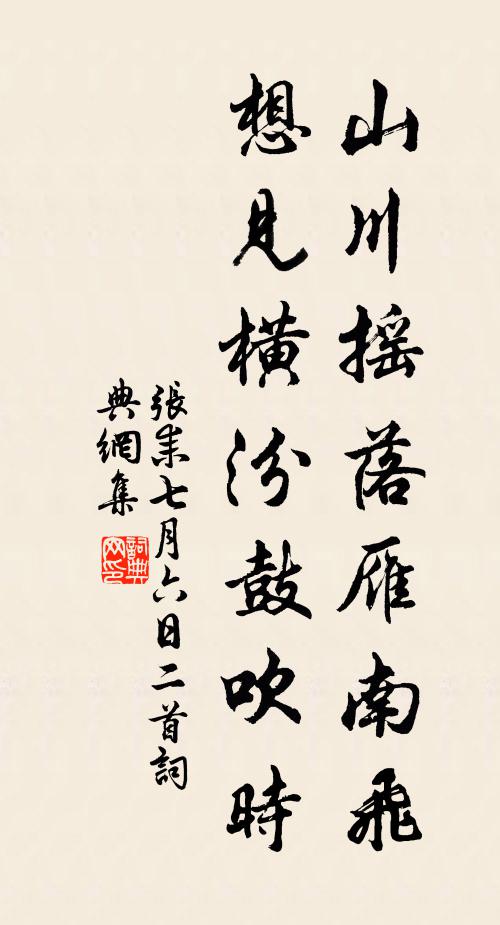 山川摇落雁南飛
想見横汾鼓吹時
張耒七月六日二首詞
典網集
詞典
网印